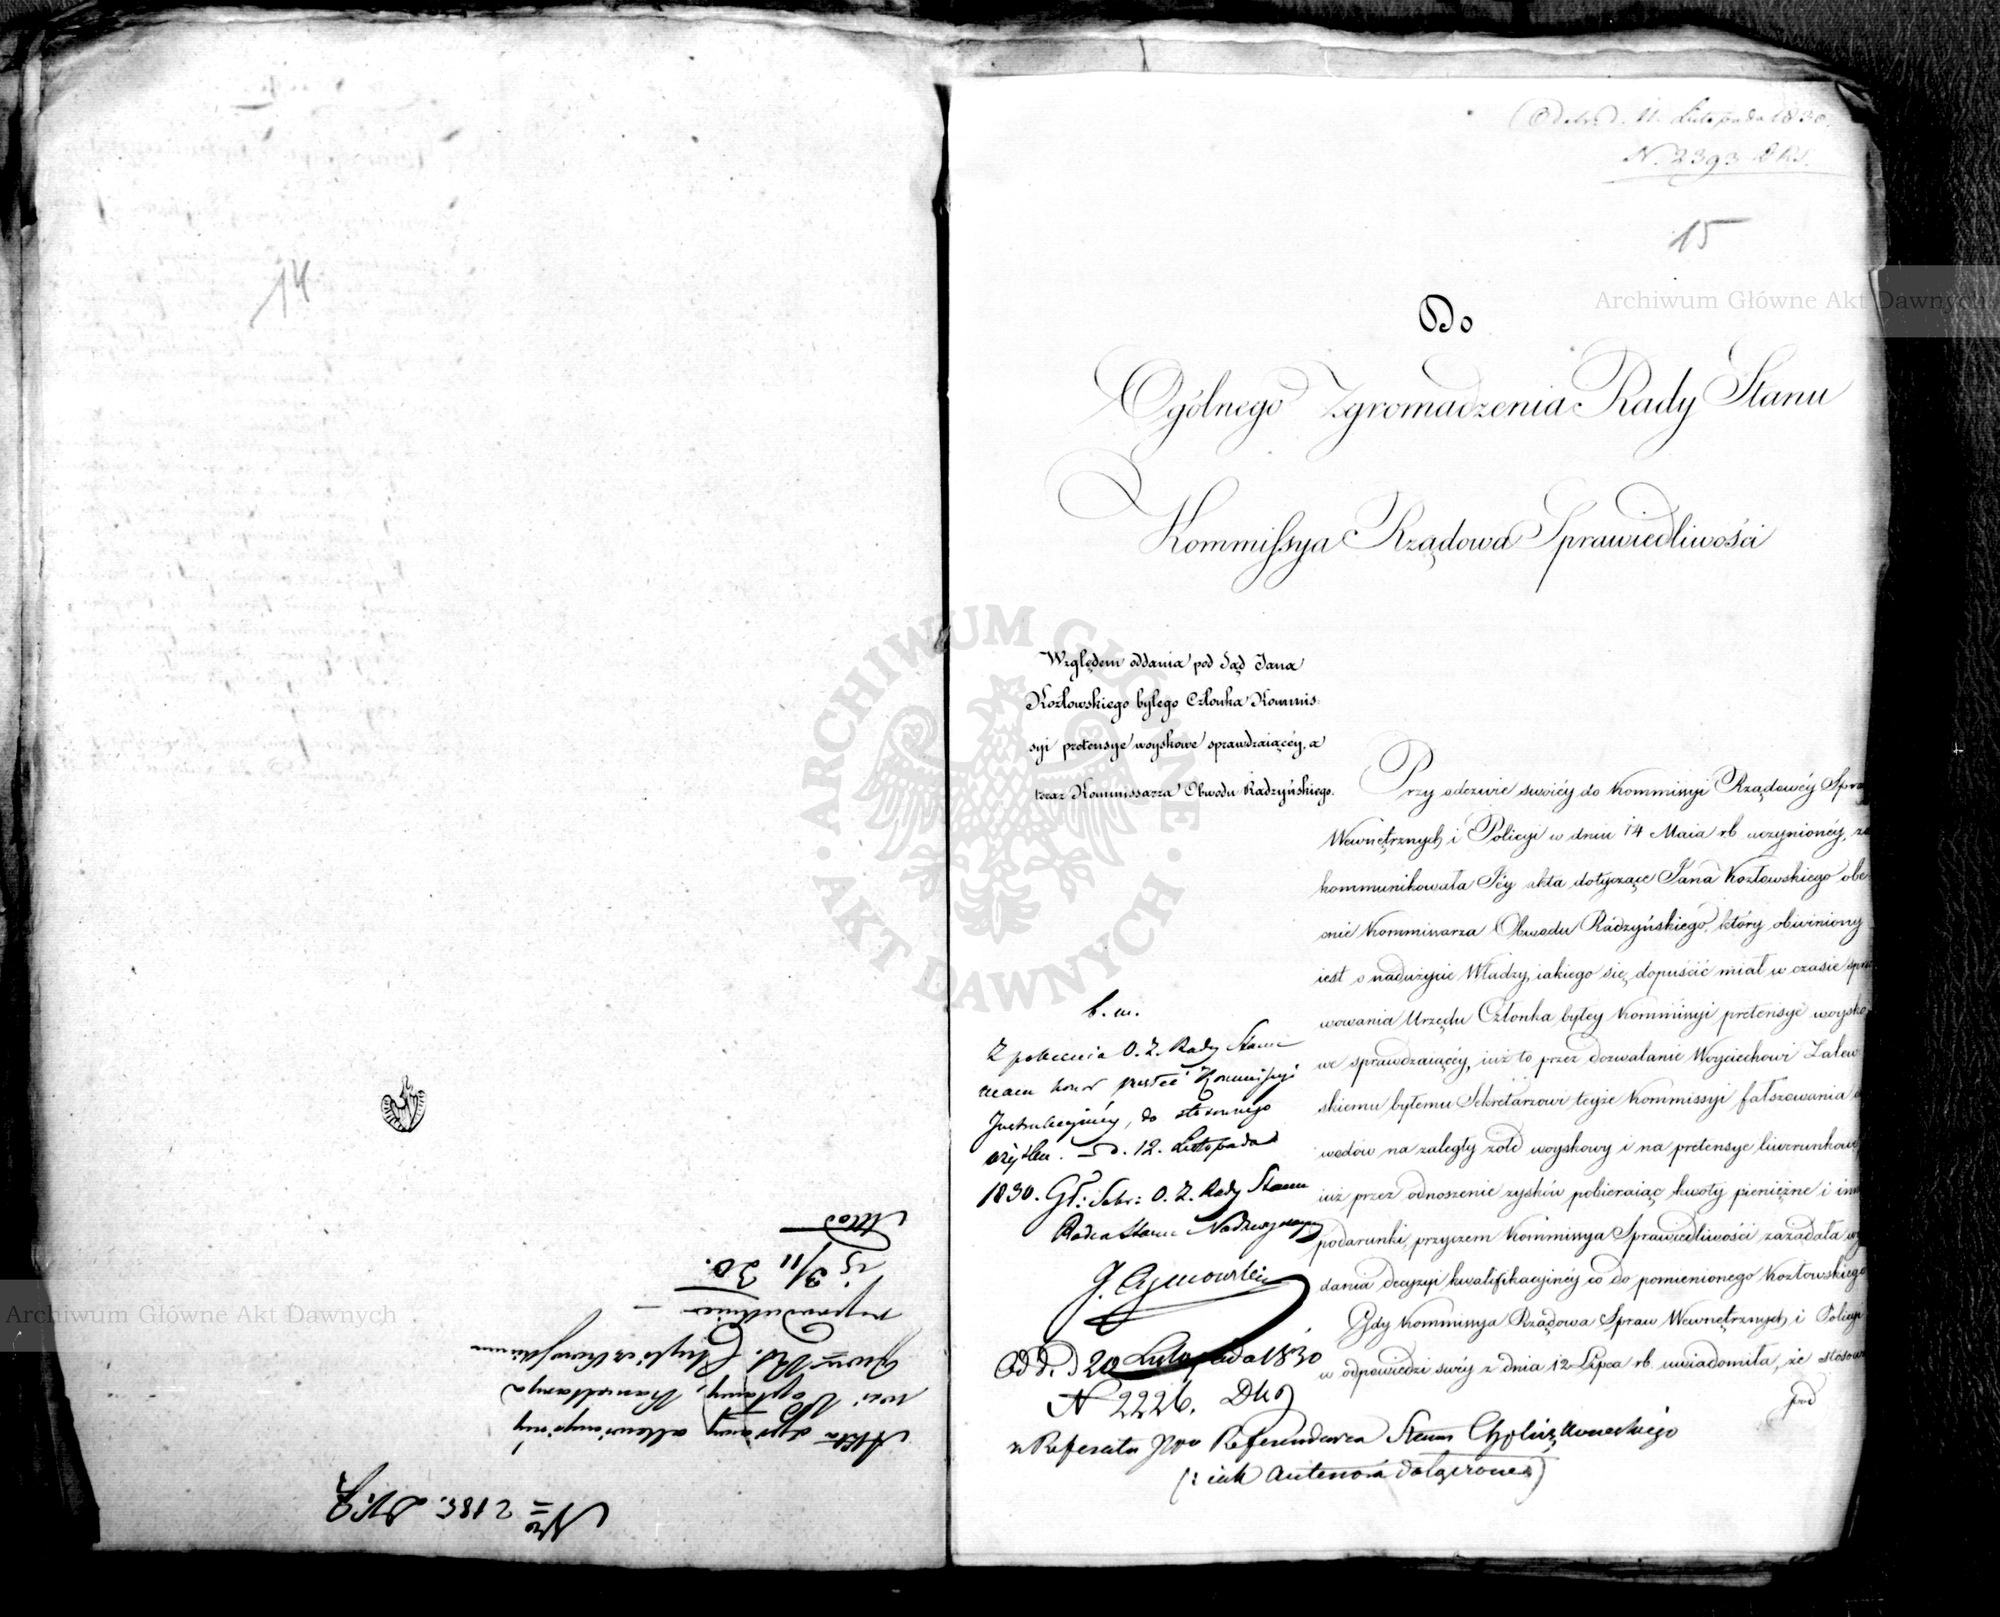 14
Nro 2185. DKG
Akta sprawy
15
Odebr. d. 11. Listopada 1830.
N. 2393 DKS.
15
Do
Ogólnego Zgromadzenia Rady Stanu
Kommissya Rządowa Sprawiedliwości
Względem oddania pod Sąd Jana
Kozłowskiego byłego Członka Kommis:
syi pretensye woyskowe sprawdzaiącéy, a
teraz Kommissarza Obwodu Radzyńskiego.
Przy odezwie swoiéy do Kommissyi Rządowéy Spra
Wewnętrznych i Policyi w dniu 14 Maia rb. uczynionéy, za
kommunikowała Jéy akta dotyczące Jana Kozłowskiego obe
cnie Kommissarza Obwodu Radzyńskiego, który obwiniony
iest o nadużycie Władzy, iakiego się dopuścić miał w czasie spra
wowania Urzędu Członka byłey Kommissyi pretensye woysko
we sprawdzaiącéy, iuż to przez dozwalanie Woyciechowi Zalew
skiemu byłemu Sekretarzowi teyże Kommissyi fałszowania
wodów na zaległy żołd woyskowy i na pretensye liwerunkowe
iuż przez odnoszenie zysków pobieraiąc kwoty pieniężne i inn
podarunki, przyczem Kommissya Sprawiedliwości zażądała wy
dania decyzyi kwalifikacyinéy co do pomienionego Kozłowskiego
Gdy Kommissya Rządowa Spraw Wewnętrznych i Policyi
w odpowiedzi swéy z dnia 12 Lipca rb. uwiadomiła, że stosow
pod
b. m.
Z polecenia O. Z. Rady Stanu
mam honor przesłać Kommissyi
Instrukcyinéy, do stosownego
użytku. D. 12. Listopada
1830. Gł: Sekr: O. Z. Rady Stanu
Radca Stanu Nadzwyczayny
Odd. d 20 Listopada 1830
N 2226. DKG
z Referatu JPro Referendarza Stanu
Archiwum Główne Akt Dawnych
Archiwum Główne Akt Dawnych
ARCHIWUM GŁÓWNE
AKT DAWNYCH